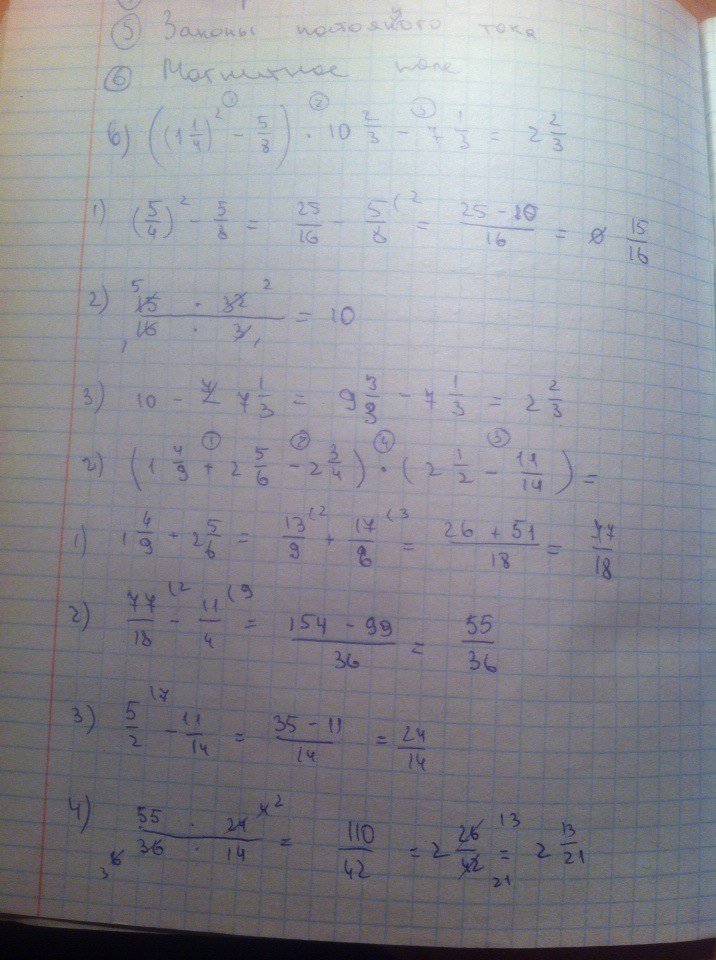 5 Законы постоянного тока
6 Магнитное поле
в) ((1 1/4)² − 5/8) · 10 2/3 − 7 1/3 = 2 2/3
1) (5/4)² − 5/8 = 25/16 − 5/8 (2 = (25 − 10)/16 = 15/16
2) (15 · 32)/(16 · 3) = 10
3) 10 − 7 1/3 = 9 3/3 − 7 1/3 = 2 2/3
г) (1 4/9 + 2 5/6 − 2 3/4) · (2 1/2 − 11/14) =
1) 1 4/9 + 2 5/6 = 13/9 (2 + 17/6 (3 = (26 + 51)/18 = 77/18
2) 77/18 (2 − 11/4 (9 = (154 − 99)/36 = 55/36
3) 5/2 (7 − 11/14 = (35 − 11)/14 = 24/14
4) (55 · 24)/(36 · 14) = 110/42 = 2 26/42 = 2 13/21